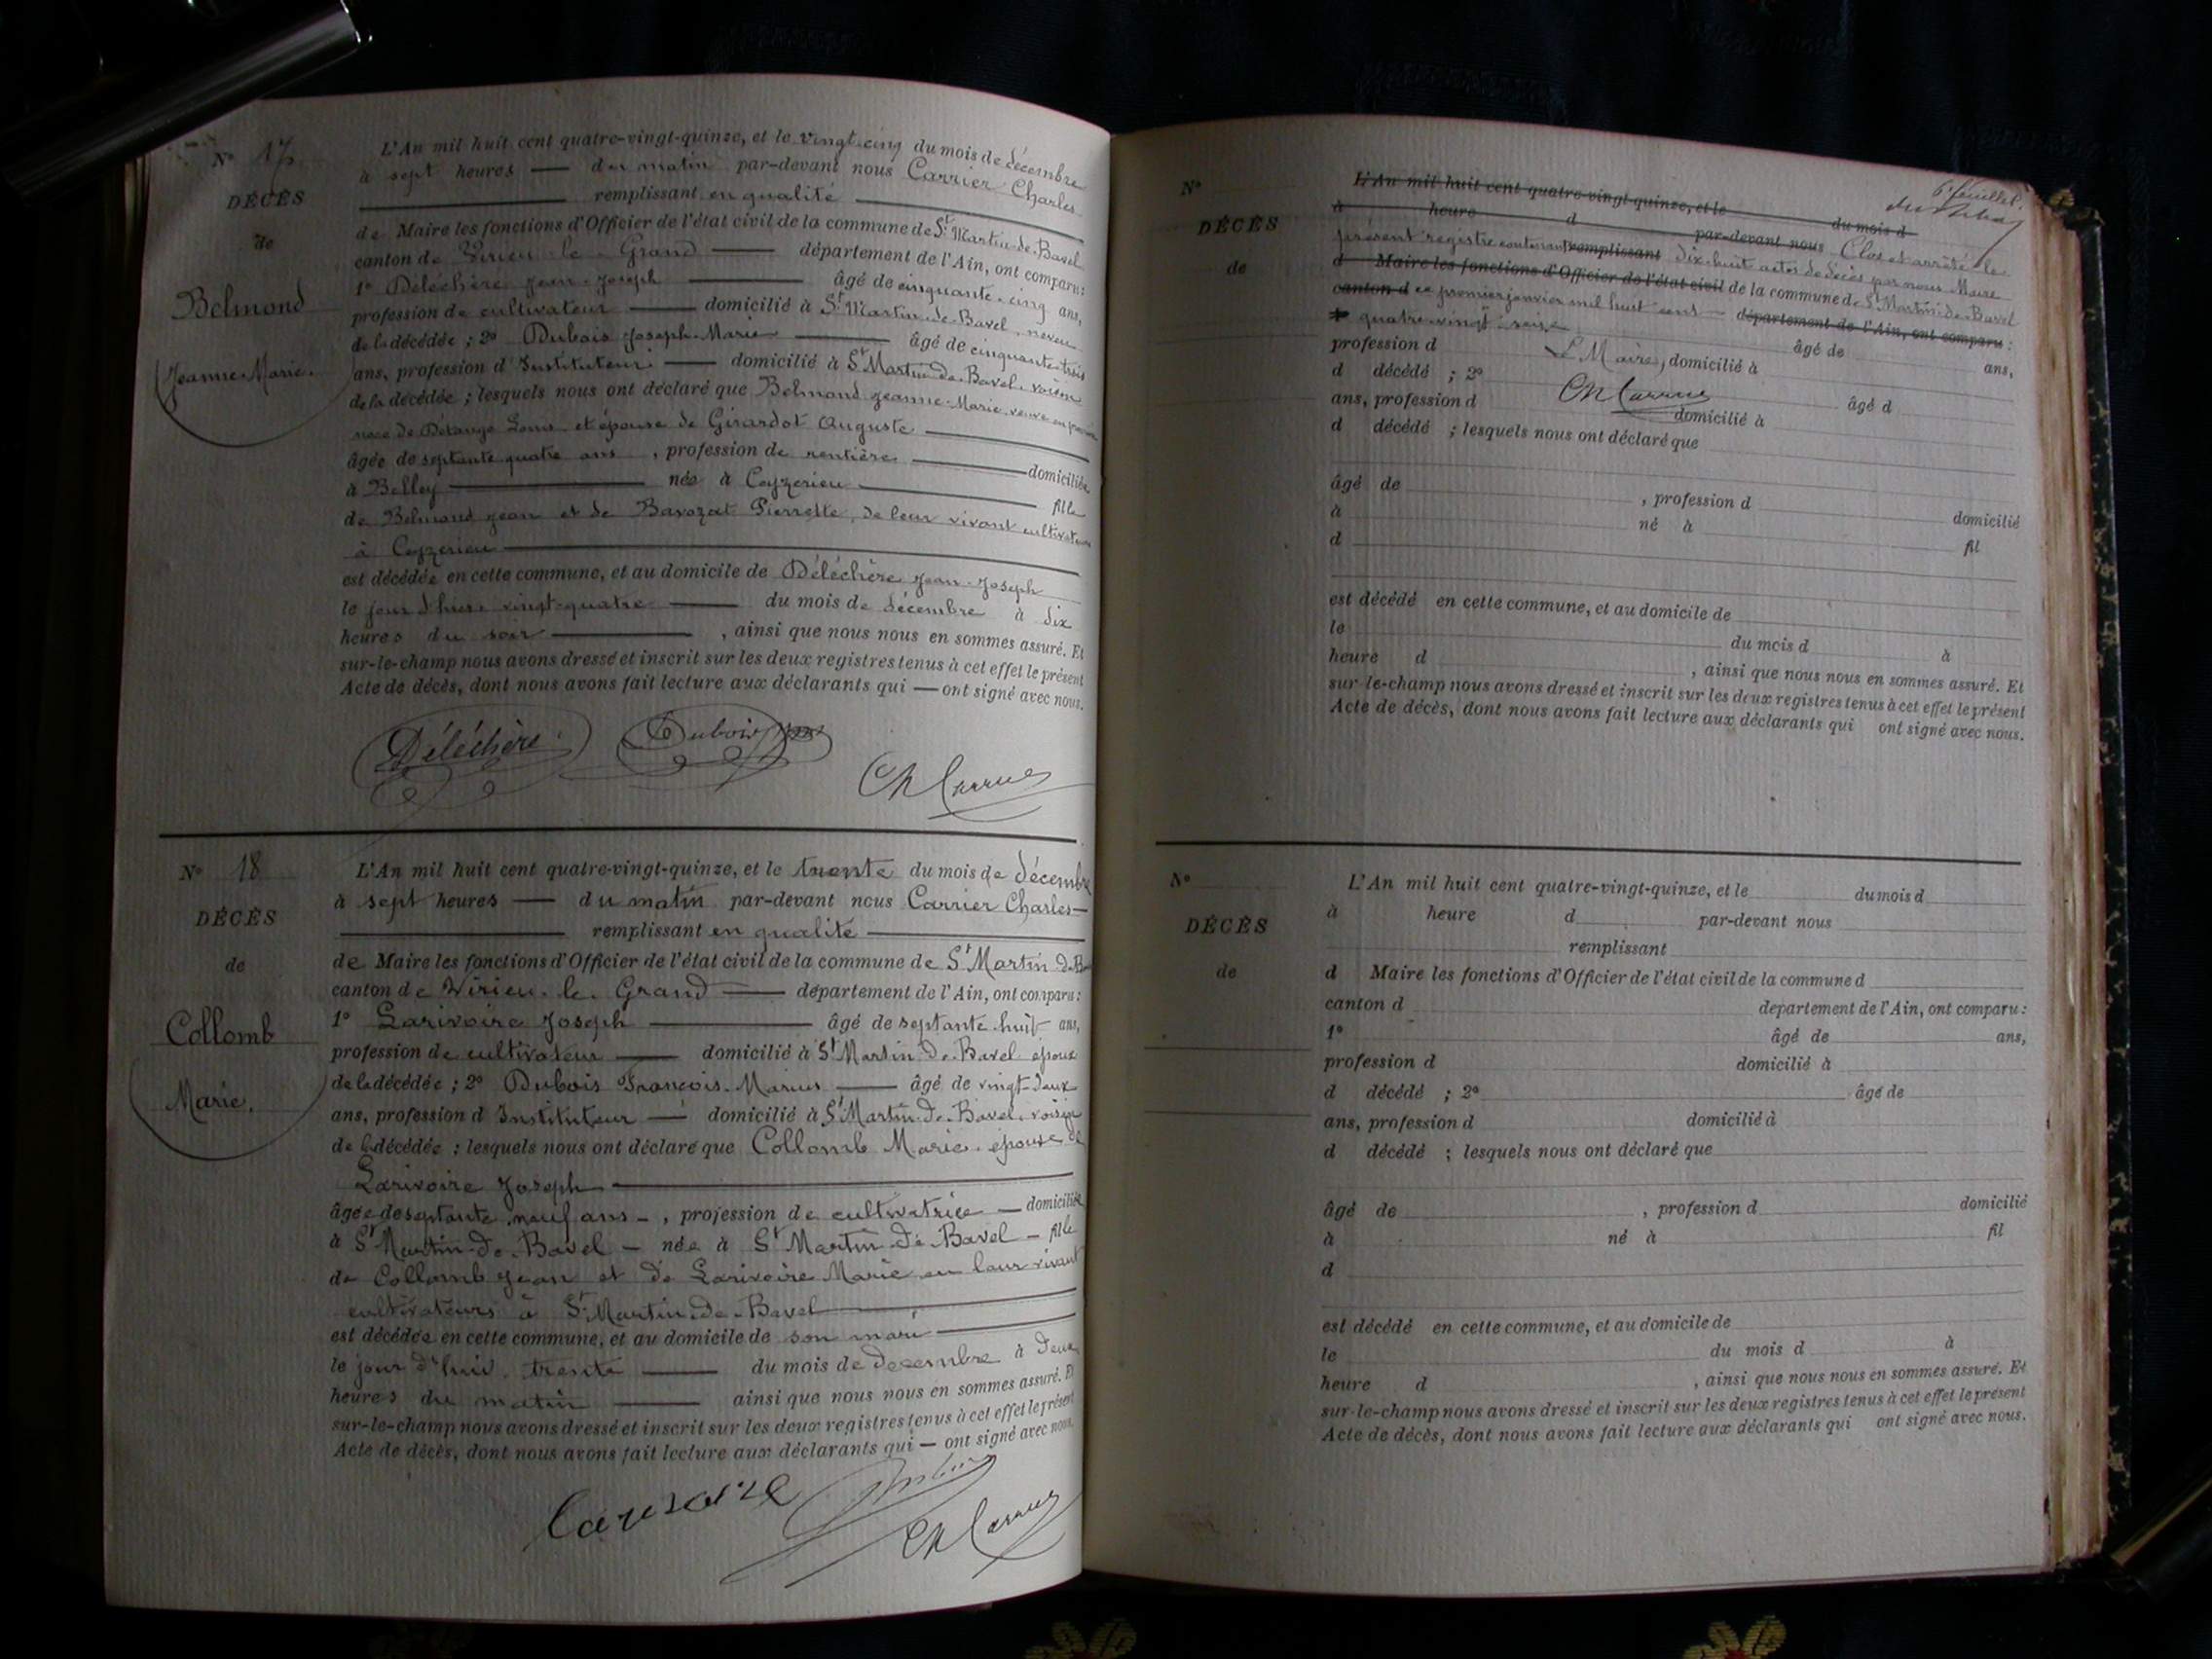 N° 17
DÉCÈS
de
Belmond
Jeanne-Marie.
L'An mil huit cent quatre-vingt-quinze, et le vingt-cinq du mois de décembre
à sept heures — du matin par-devant nous Carrier Charles
remplissant en qualité
de Maire les fonctions d'Officier de l'état civil de la commune de St Martin-de-Bavel
canton de Virieu-le-Grand — département de l'Ain, ont comparu:
1° Déléchère Jean-Joseph — âgé de cinquante-cinq ans,
profession de cultivateur — domicilié à St Martin-de-Bavel, neveu
de la décédée ; 2° Dubois Joseph-Marie — âgé de cinquante-trois
ans, profession d'Instituteur — domicilié à St Martin-de-Bavel, voisin
de la décédée ; lesquels nous ont déclaré que Belmond Jeanne-Marie veuve en premières
noce de Louis et épouse de Girardot Auguste
âgée de septante quatre ans , profession de rentière — domiciliée
à Belley — née à Ceyzerieu — fille
de Belmond Jean et de Pierrette, de leur vivant cultivateurs
à Ceyzerieu
est décédée en cette commune, et au domicile de Déléchère Jean-Joseph
le jour d'hier, vingt-quatre — du mois de décembre à dix
heures du soir — , ainsi que nous nous en sommes assuré. Et
sur-le-champ nous avons dressé et inscrit sur les deux registres tenus à cet effet le présent
Acte de décès, dont nous avons fait lecture aux déclarants qui — ont signé avec nous.
Déléchère Dubois
Ch Carrier
N° 18
DÉCÈS
de
Collomb
Marie.
L'An mil huit cent quatre-vingt-quinze, et le trente du mois de décembre
à sept heures — du matin par-devant nous Carrier Charles —
remplissant en qualité
de Maire les fonctions d'Officier de l'état civil de la commune de St Martin-de-B
canton de Virieu-le-Grand — département de l'Ain, ont comparu:
1° Larivoire Joseph — âgé de septante-huit ans,
profession de cultivateur — domicilié à St Martin-de-Bavel époux
de la décédée ; 2° Dubois François-Marius — âgé de vingt-deux
ans, profession d'Instituteur — domicilié à St Martin-de-Bavel, voisin
de la décédée ; lesquels nous ont déclaré que Collomb Marie, épouse de
Larivoire Joseph
âgée de septante neuf ans — , profession de cultivatrice — domiciliée
à St Martin-de-Bavel — née à St Martin-de-Bavel — fille
de Collomb Jean et de Larivoire Marie en leur vivant
cultivateurs à St Martin-de-Bavel
est décédée en cette commune, et au domicile de son mari
le jour d'hui, trente — du mois de Décembre à deux
heures du matin — ainsi que nous nous en sommes assuré. Et
sur-le-champ nous avons dressé et inscrit sur les deux registres tenus à cet effet le présent
Acte de décès, dont nous avons fait lecture aux déclarants qui — ont signé avec nous.
Larivoire Dubois
Ch Carrier
6e feuillet
N°
DÉCÈS
de
L'An mil huit cent quatre-vingt-quinze, et le du mois d
à heure d par-devant nous Clos et arrêté le
présent registre contenant remplissant dix-huit actes de décès par nous Maire
d Maire les fonctions d'Officier de l'état civil de la commune de St Martin-de-Bavel
canton d ce premier janvier mil huit cent — département de l'Ain, ont comparu :
1° quatre-vingt-seize âgé de ans,
profession d Le Maire, domicilié à
d décédé ; 2° Ch Carrier âgé d
ans, profession d domicilié à
d décédé ; lesquels nous ont déclaré que
âgé de , profession d domicilié
à né à fil
d
est décédé en cette commune, et au domicile de
le du mois d à
heure d , ainsi que nous nous en sommes assuré. Et
sur-le-champ nous avons dressé et inscrit sur les deux registres tenus à cet effet le présent
Acte de décès, dont nous avons fait lecture aux déclarants qui ont signé avec nous.
N°
DÉCÈS
de
L'An mil huit cent quatre-vingt-quinze, et le du mois d
à heure d par-devant nous
remplissant
d Maire les fonctions d'Officier de l'état civil de la commune d
canton d département de l'Ain, ont comparu :
1° âgé de ans,
profession d domicilié à
d décédé ; 2° âgé de
ans, profession d domicilié à
d décédé ; lesquels nous ont déclaré que
âgé de , profession d domicilié
à né à fil
d
est décédé en cette commune, et au domicile de
le du mois d à
heure d , ainsi que nous nous en sommes assuré. Et
sur-le-champ nous avons dressé et inscrit sur les deux registres tenus à cet effet le présent
Acte de décès, dont nous avons fait lecture aux déclarants qui ont signé avec nous.